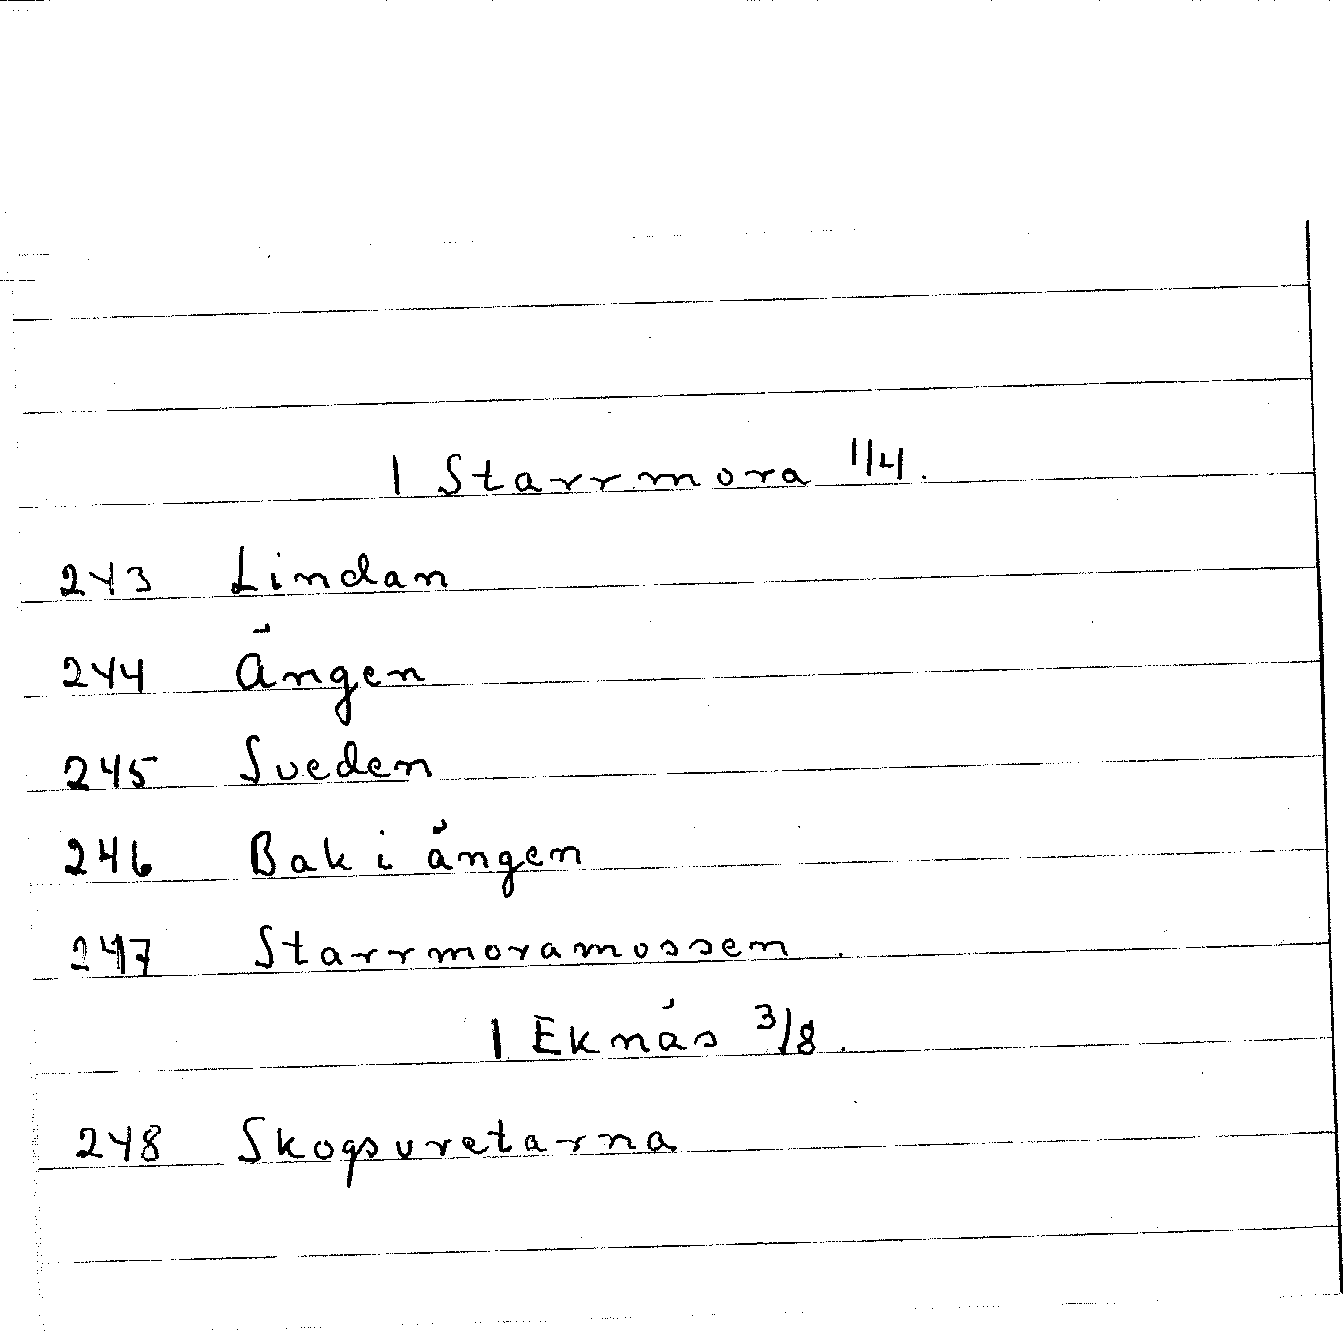 I Starrmora 1/4.
243 Lindan
244 Ängen
245 Sveden
246 Bak i ängen
247 Starrmoramossen.
I Eknäs 3/8.
248 Skogsvretarna